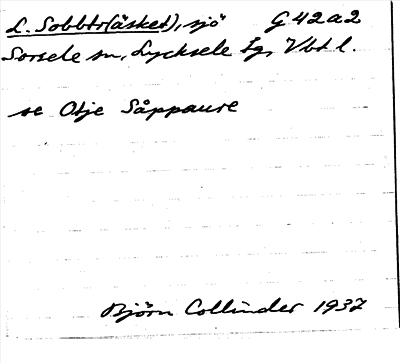 L. Sobbtr(äsket), sjö G 42 a 2
Sorsele sn, Lycksele lg, Vbtl.
se Otje Såppaure
Björn Collinder 1937